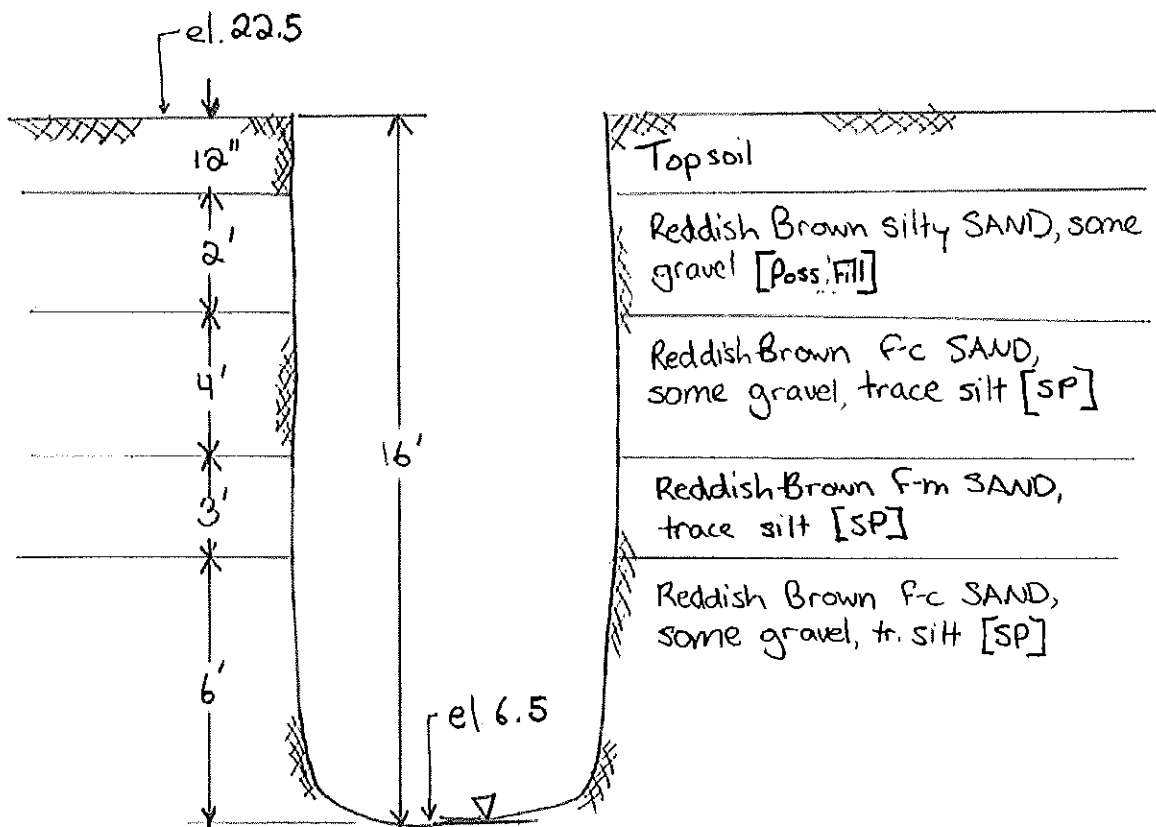 el. 22.5
12"
Topsoil
2'
Reddish Brown silty SAND, some
gravel [Poss. Fill]
4'
Reddish Brown f-c SAND,
some gravel, trace silt [SP]
16'
3'
Reddish Brown f-m SAND,
trace silt [SP]
Reddish Brown f-c SAND,
some gravel, tr. silt [SP]
6'
el. 6.5